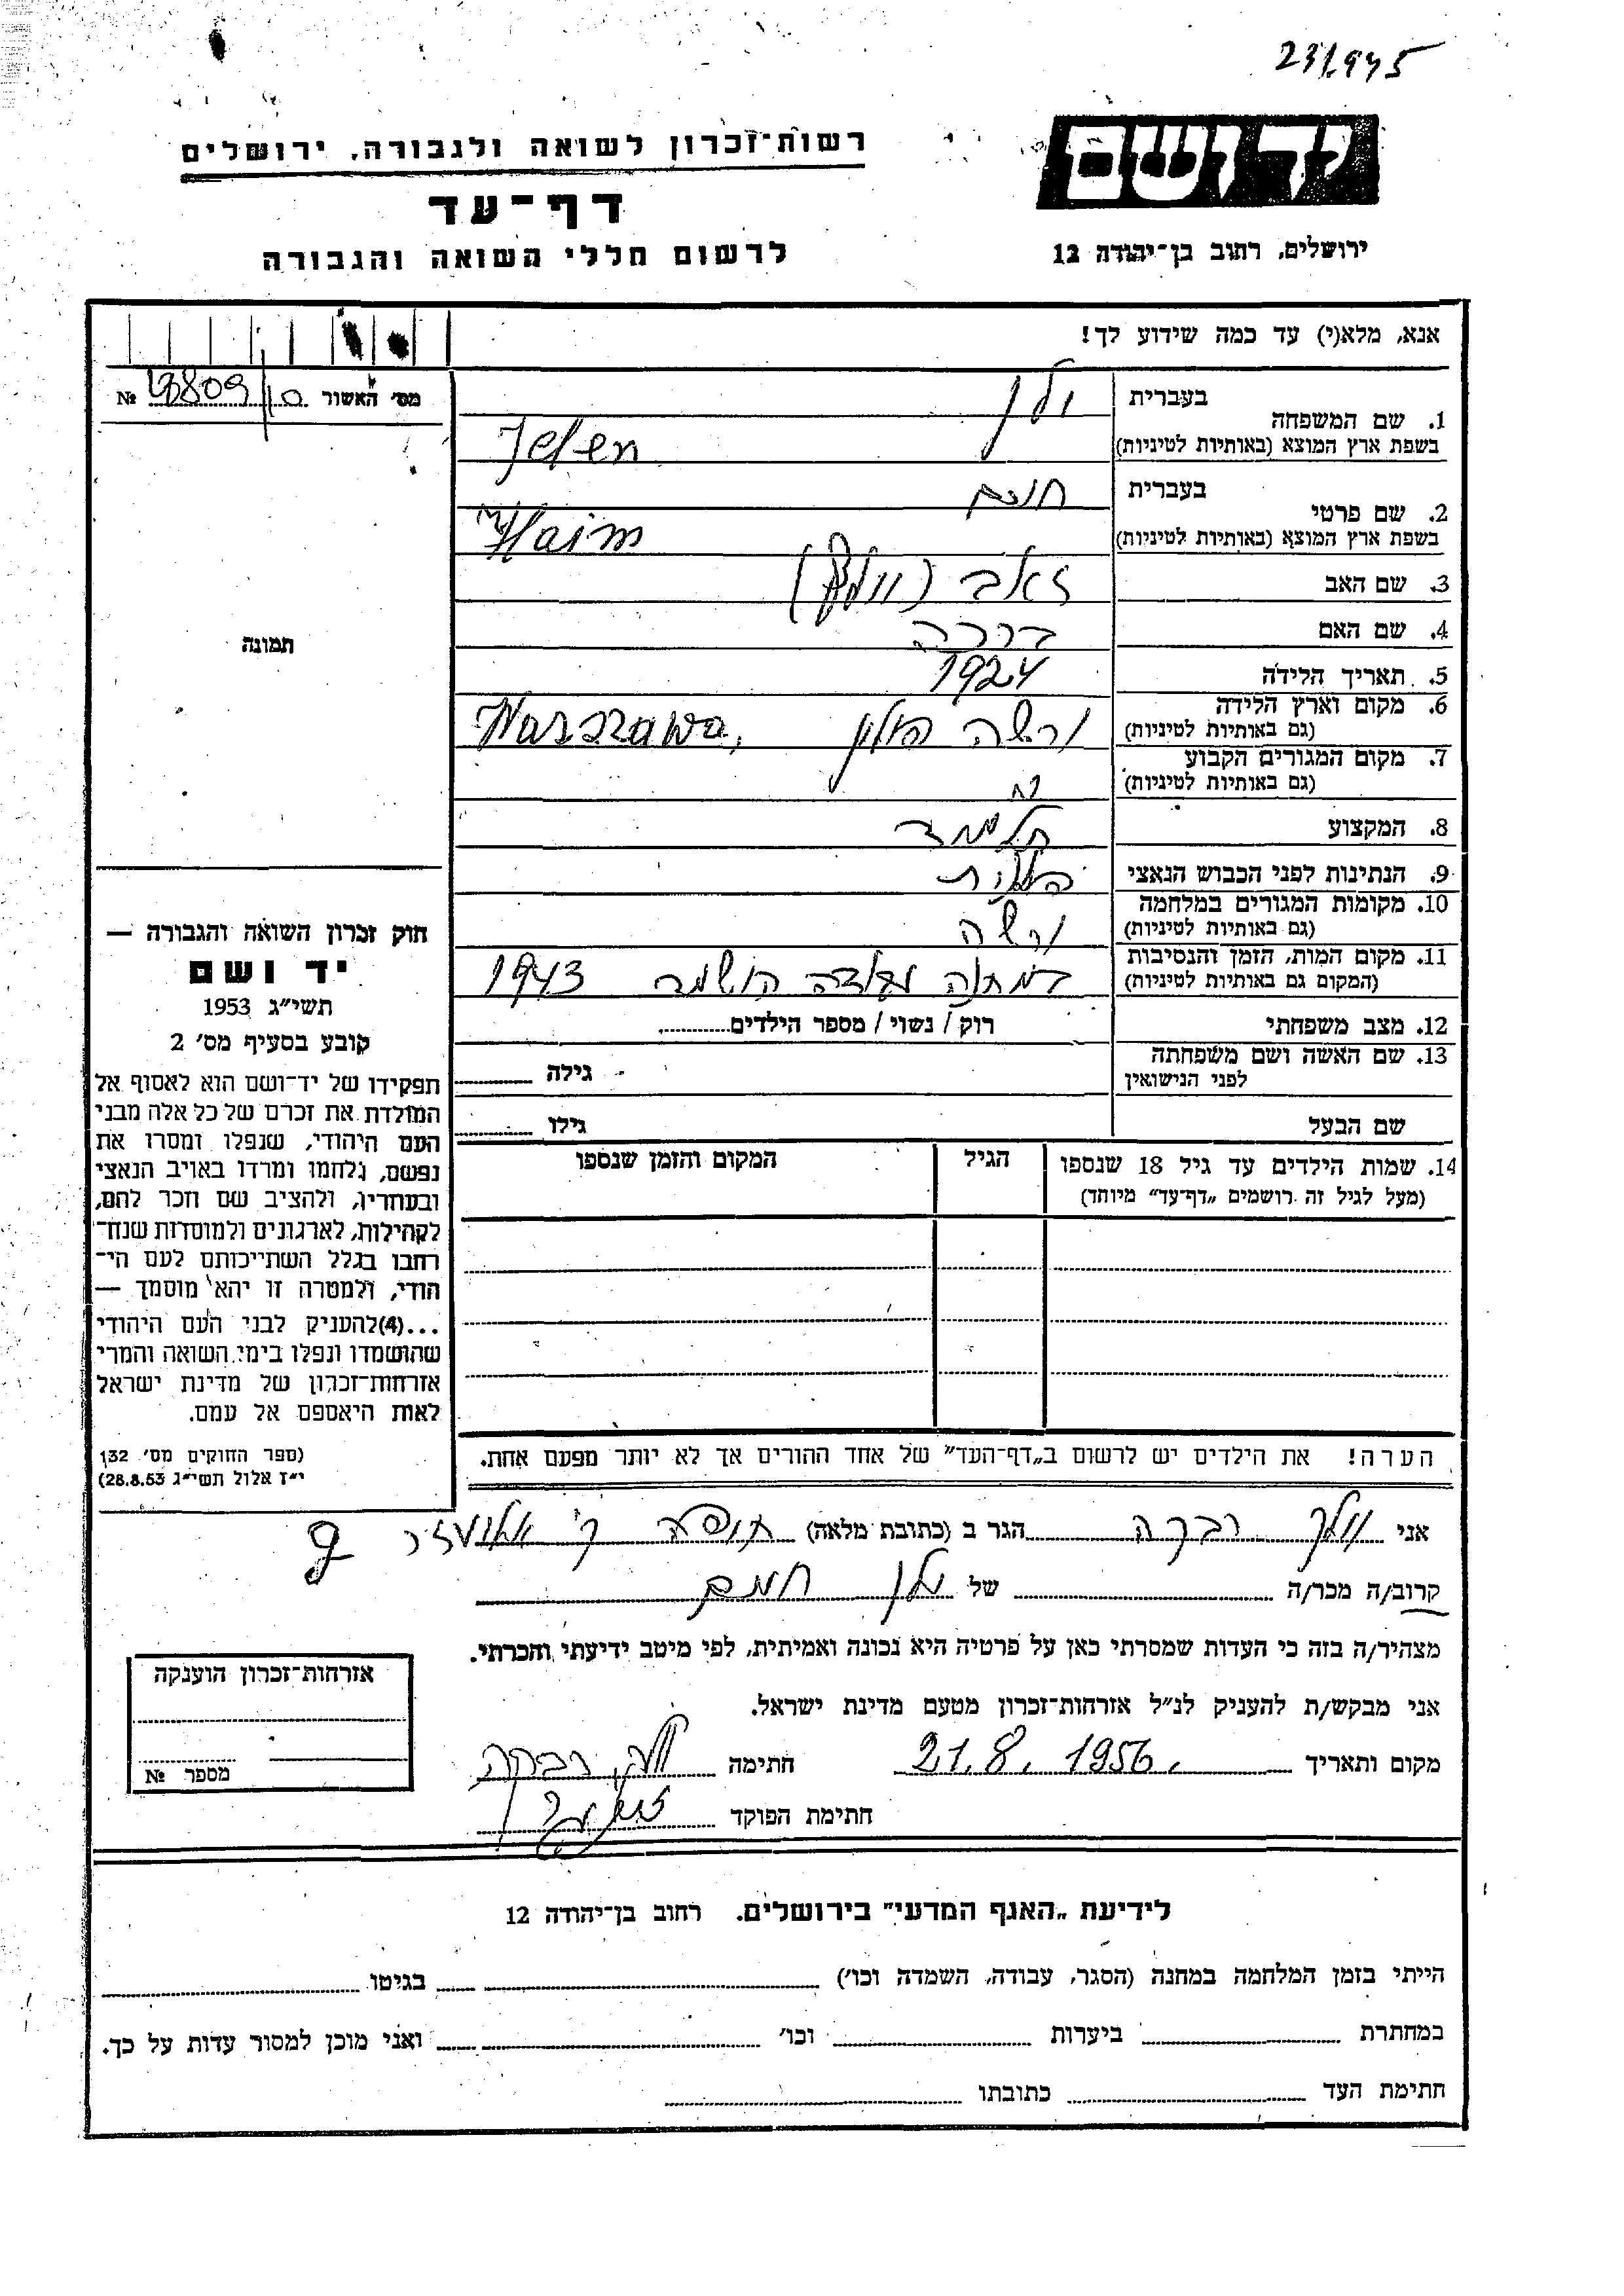 231945
רשות־זכרון לשואה ולגבורה, ירושלים
יד ושם
דף־עד
לרשום חללי השואה והגבורה
ירושלים, רחוב בן־יהודה 12
אנא, מלא(י) עד כמה שידוע לך!
מס׳ האשור № 
1. שם המשפחה
בעברית ילן
בשפת ארץ המוצא (באותיות לטיניות) Jelen
2. שם פרטי
בעברית חיים
בשפת ארץ המוצא (באותיות לטיניות) Haim
3. שם האב זאב (וולף)
4. שם האם ברכה
5. תאריך הלידה 1924
6. מקום וארץ הלידה
(גם באותיות לטיניות) ורשה פולין Warszawa,
7. מקום המגורים הקבוע
(גם באותיות לטיניות)
8. המקצוע תלמיד
9. הנתינות לפני הכבוש הנאצי פולנית
10. מקומות המגורים במלחמה
(גם באותיות לטיניות) ורשה
11. מקום המות, הזמן והנסיבות
(המקום גם באותיות לטיניות) במחנה עבודה הושמד 1943
12. מצב משפחתי רוק / נשוי / מספר הילדים
13. שם האשה ושם משפחתה
לפני הנישואין גילה
שם הבעל גילו
14. שמות הילדים עד גיל 18 שנספו הגיל המקום והזמן שנספו
(מעל לגיל זה רושמים „דף־עד״ מיוחד)
הערה! את הילדים יש לרשום ב„דף־העד״ של אחד ההורים אך לא יותר מפעם אחת.
תמונה
חוק זכרון השואה והגבורה —
יד ושם
תשי״ג 1953
קובע בסעיף מס׳ 2
תפקידו של יד־ושם הוא לאסוף אל
המולדת את זכרם של כל אלה מבני
העם היהודי, שנפלו ומסרו את
נפשם, נלחמו ומרדו באויב הנאצי
ובעוזריו, ולהציב שם וזכר להם,
לקהילות, לארגונים ולמוסדות שנח־
רבו בגלל השתייכותם לעם הי־
הודי, ולמטרה זו יהא מוסמך —
...(4) להעניק לבני העם היהודי
שהושמדו ונפלו בימי השואה והמרי
אזרחות־זכרון של מדינת ישראל
לאות היאספם אל עמם.
(ספר החוקים מס׳ 132,
י״ז אלול תשי״ג 28.8.53)
אני רבקה הגר ב (כתובת מלאה) חיפה
קרוב/ה מכר/ה של ילן חיים
מצהיר/ה בזה כי העדות שמסרתי כאן על פרטיה היא נכונה ואמיתית, לפי מיטב ידיעתי והכרתי.
אני מבקש/ת להעניק לנ״ל אזרחות־זכרון מטעם מדינת ישראל.
מקום ותאריך 21.8.1956 חתימה רבקה
חתימת הפוקד
אזרחות־זכרון הוענקה
מספר №
לידיעת „האגף המדעי״ בירושלים. רחוב בן־יהודה 12
הייתי בזמן המלחמה במחנה (הסגר, עבודה, השמדה וכו׳) בגיטו
במחתרת ביערות וכו׳ ואני מוכן למסור עדות על כך.
חתימת העד כתובתו